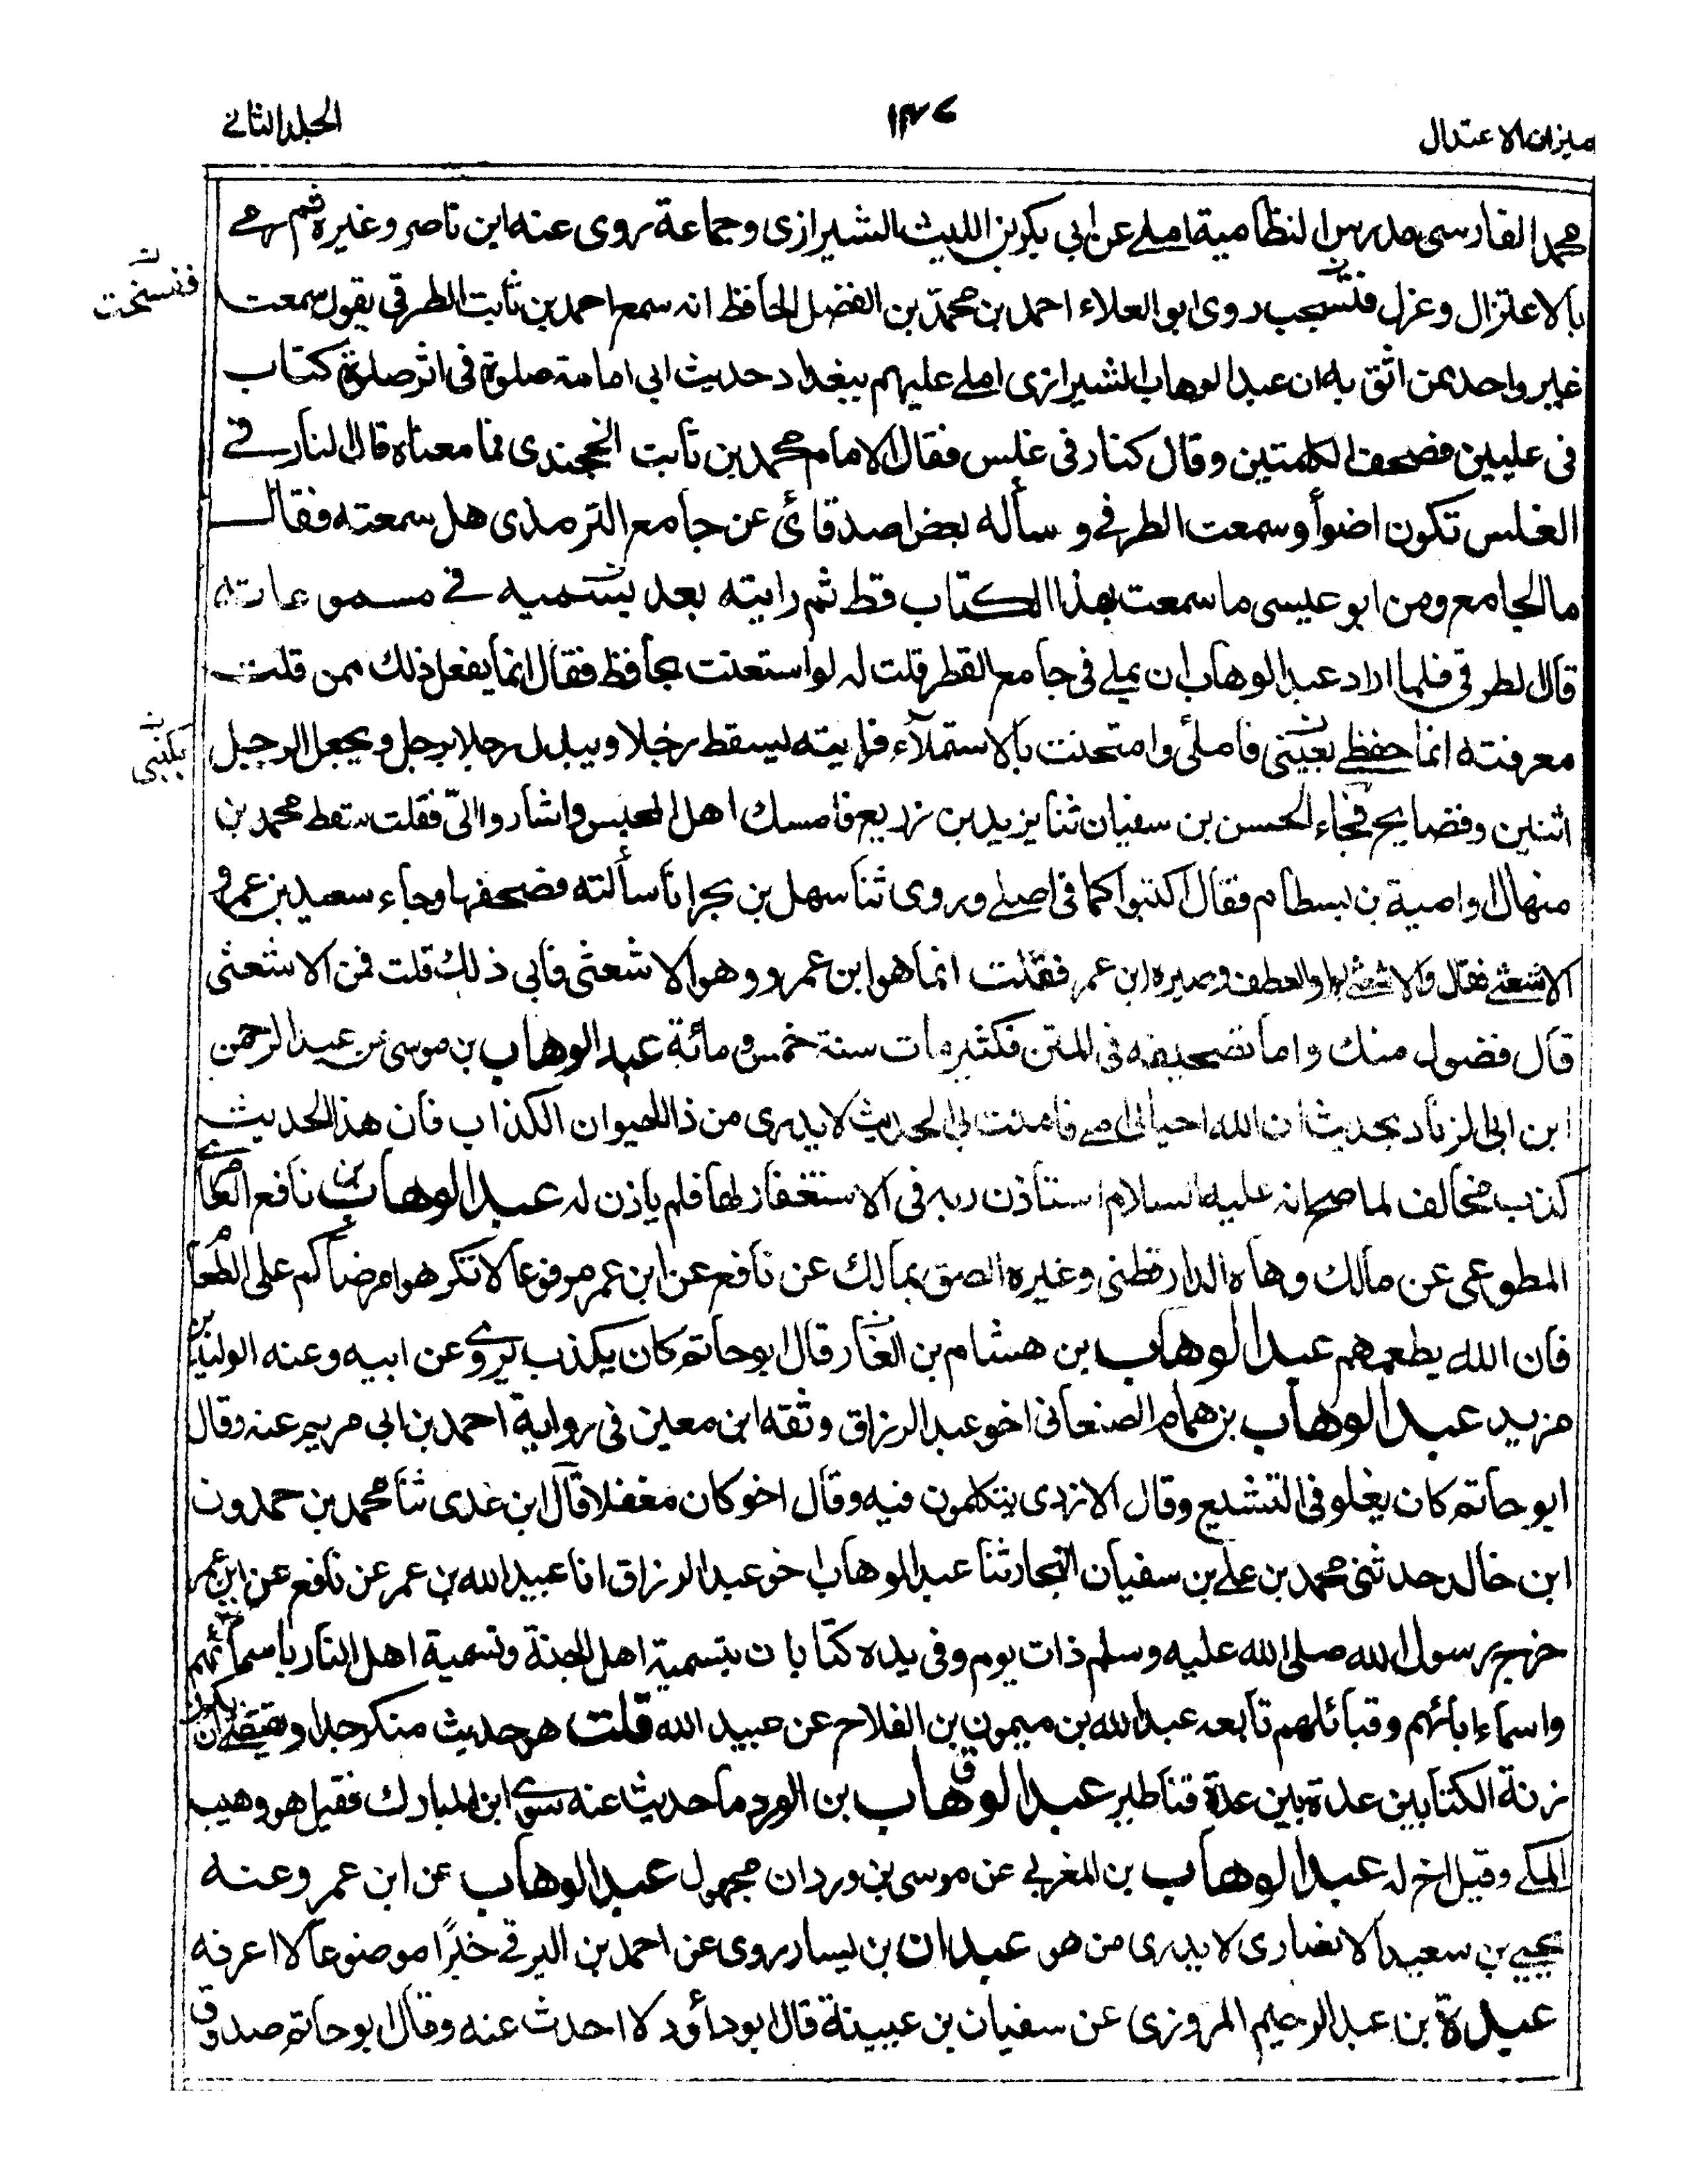 ميزان الاعتدال
١٣٧
الجلد الثاني
محمد الفارسي مدرس النظامية املى عن ابي بكر بن الليث الشيرازى وجماعة روى عنه ابن ناصر وغيره فتم رمى
بالاعتزال وعزل فتسحب روى ابو العلاء احمد بن محمد بن الفضل الحافظ انه سمع احمد بن ثابت الطرقى يقول سمعت
غير واحد ممن اثق به ان عبد الوهاب الشيرازى املى عليهم ببغداد حديث ابى امامة صلوة فى اثر صلوة كتاب
فى عليين فصحف الكلمتين وقال كنار فى غلس فقال الامام محمد بن ثابت الخجندى فما معناه قال النار فى
الغلس تكون اضوأ وسمعت الطرقى و سأله بعض اصدقائى عن جامع الترمذى هل سمعته فقال
ما الجامع ومن ابو عيسى ما سمعت بهذا الكتاب قط ثم رايته بعد يسميه فى مسموعاته
قال الطرقى فلما اراد عبد الوهاب ان يملى فى جامع القطر قلت له لو استعنت بحافظ فقال انما يفعل ذلك ممن قلت
معرفته انما حفظى يعيننى فاملى وامتحنت بالاستملاء فرايته يسقط رجلا ويبدل رجلا برجل ويجعل الرجل
اثنين وفضايح فجاء الحسن بن سفيان ثنا يزيد بن زريع فامسك اهل المجلس واشاروا الىّ فقلت سقط محمد بن
منهال او امية بن بسطام فقال اكتبوا كما فى اصلى وروى ثنا سهل بن بحر انا سألته فصحفها وجاء سعيد بن عمرو
الاشعثى فقال والاشعثى بواو العطف وصيره ابن عمر فقلت انما هو ابن عمرو وهو الاشعثى فابى ذلك قلت فمن الاشعثى
قال فضول منك واما تصحيفه فى المتن فكثير مات سنة خمس ومائة عبد الوهاب بن موسى عن عبد الرحمن
ابن ابى الزناد بحديث ان الله احيا لى امى فامنت بى الحديث لا يدرى من ذا الحيوان الكذاب فان هذا الحديث
كذب مخالف لما صح انه عليه السلام استاذن ربه فى الاستغفار لها فلم ياذن له عبد الوهاب بن نافع العامرى
المطوعى عن مالك وهاه الدارقطنى وغيره الصق بمالك عن نافع عن ابن عمر مرفوعا لا تكرهوا مرضاكم على الطعام
فان الله يطعمهم عبد الوهاب بن هشام بن الغار قال ابو حاتم كان يكذب يروى عن ابيه وعنه الوليد بن
مزيد عبد الوهاب بن همام الصنعانى اخو عبد الرزاق وثقه ابن معين فى رواية احمد بن ابى مريم عنه وقال
ابو حاتم كان يغلو فى التشيع وقال الازدى يتكلمون فيه وقال اخو كان مغفلا قال ابن عدى ثنا محمد بن حمدون
ابن خالد حدثنى محمد بن على بن سفيان النجار ثنا عبد الوهاب اخو عبد الرزاق انا عبيد الله بن عمر عن نافع عن ابن عمر
خرج رسول الله صلى الله عليه وسلم ذات يوم وفى يده كتابان بتسمية اهل الجنة وتسمية اهل النار باسمائهم
واسماء ابائهم وقبائلهم تابعه عبد الله بن ميمون بن القداح عن عبيد الله قلت هو حديث منكر جدا ويقتضى ان يكون
زنة الكتابين عدة بين عدة قناطير عبد الوهاب بن الورد ما حديث عنه سوى ابن المبارك فقيل هو وهيب
المكى وقيل اخ له عبد الوهاب بن المغربى عن موسى بن وردان مجهول عبد الوهاب عن ابن عمر وعنه
يحيى بن سعيد الانصارى لا يدرى من هو عبدان بن يسار روى عن احمد بن البرقى خبرًا موضوعا لا اعرفه
عبدة بن عبد الرحيم المروزى عن سفيان بن عيينة قال ابو داؤد لا احدث عنه وقال ابو حاتم صدوق